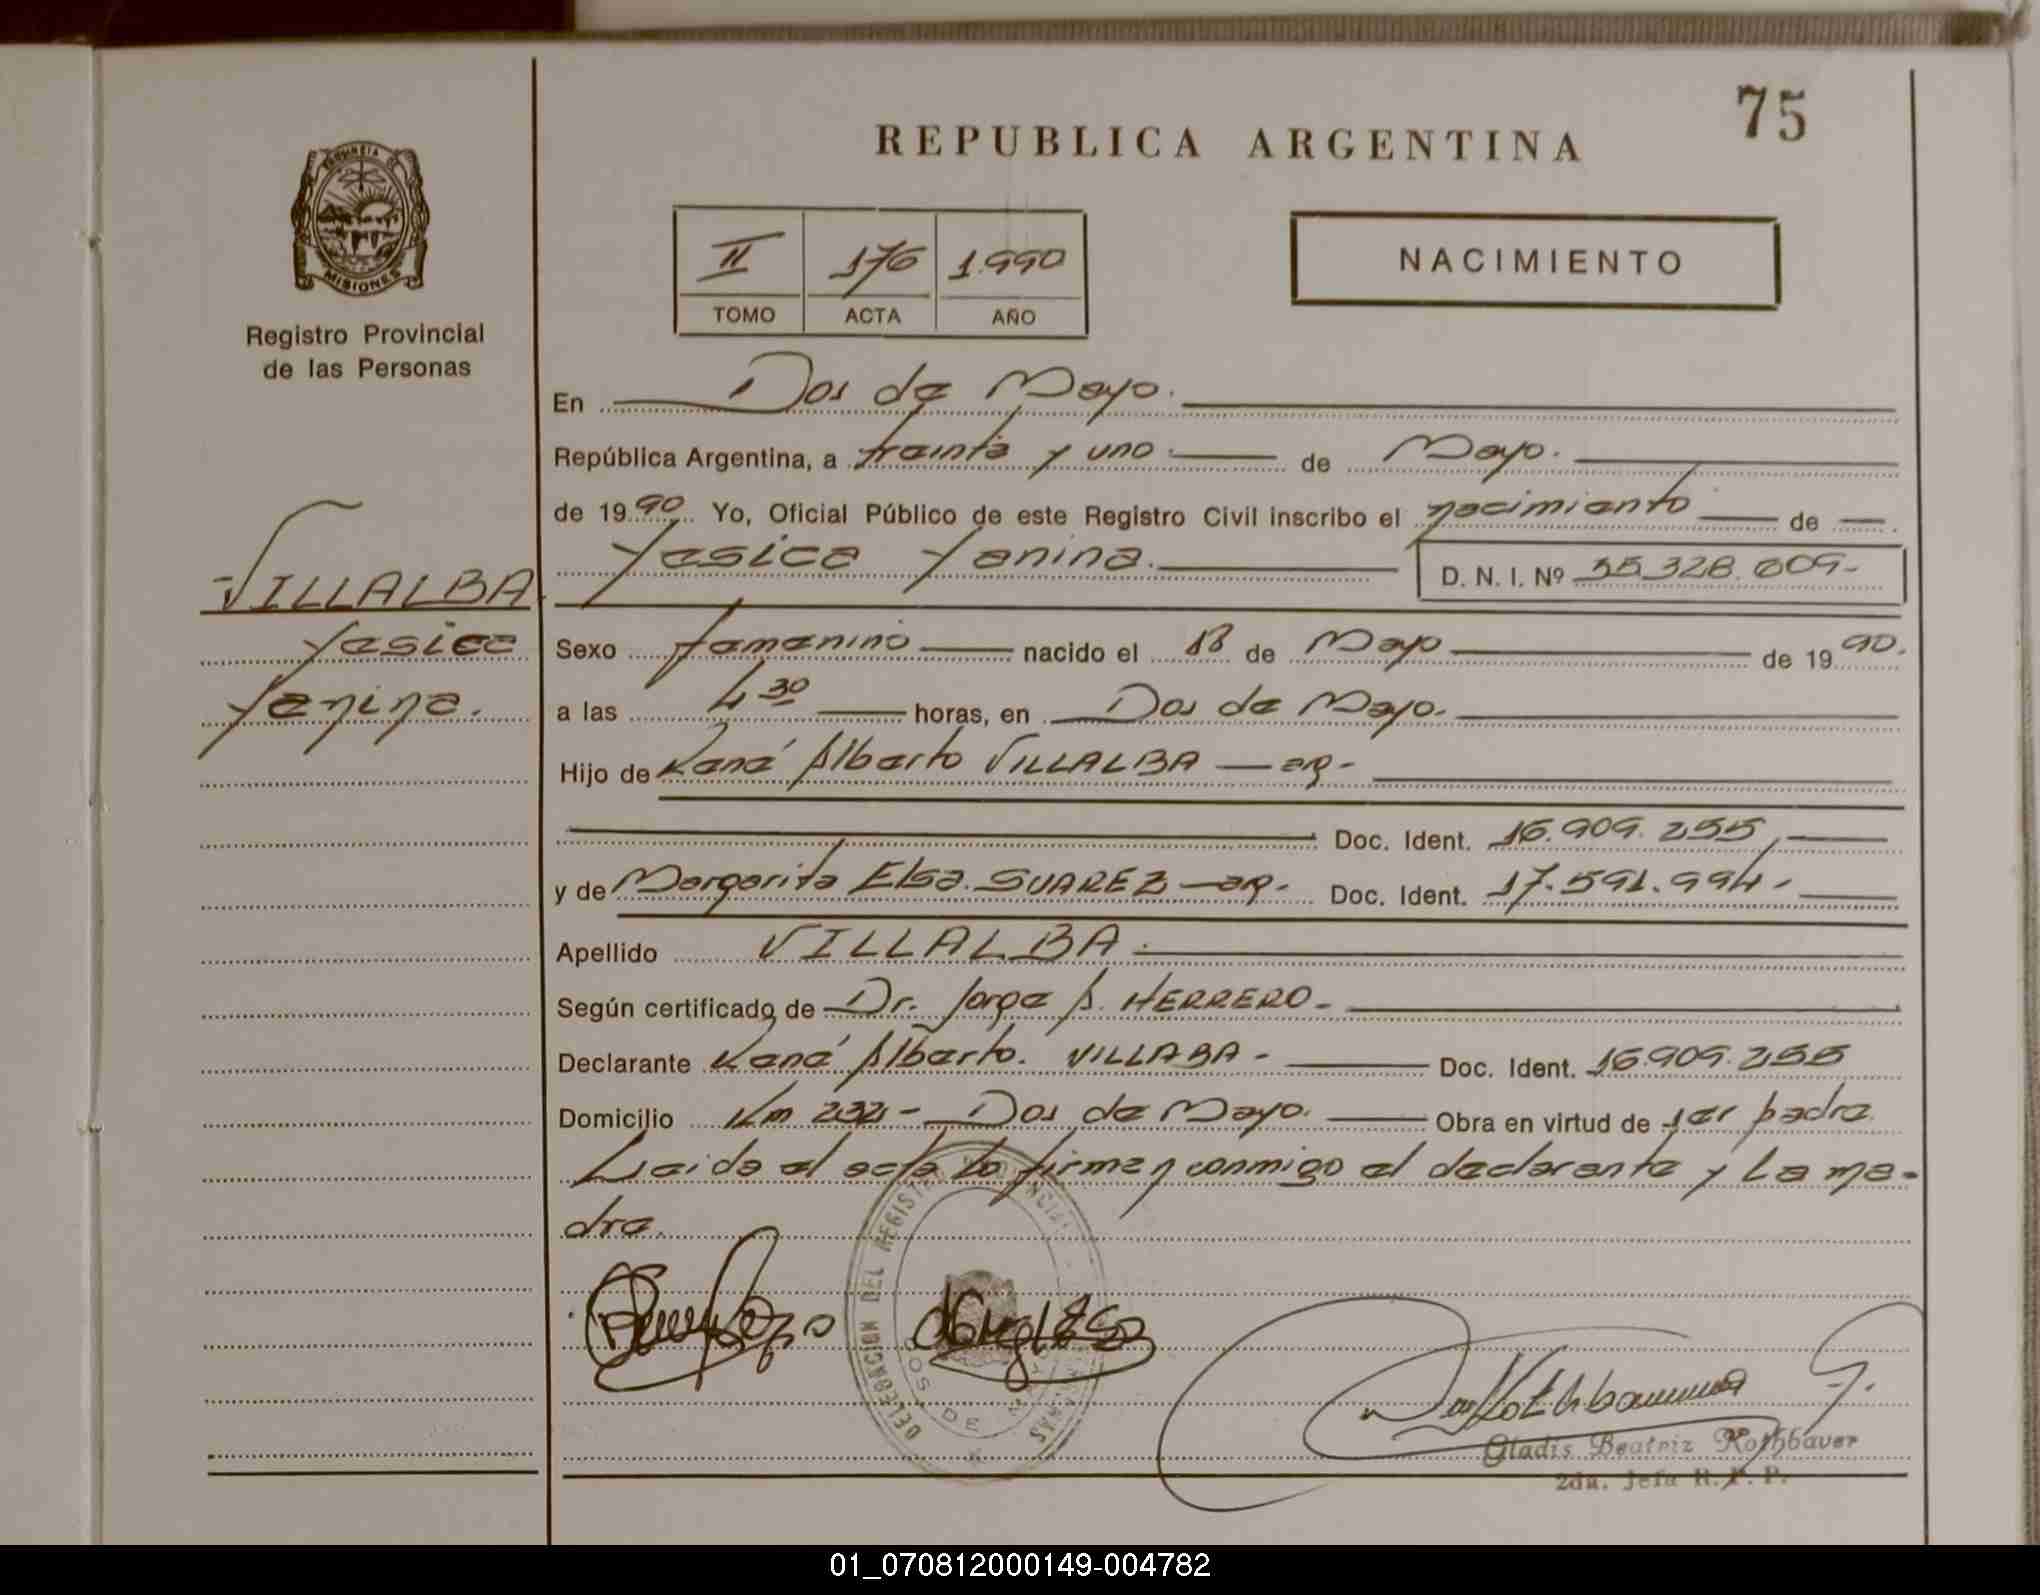 75
REPUBLICA ARGENTINA
PROVINCIA DE
MISIONES
Registro Provincial
de las Personas
II 176 1.990
TOMO ACTA AÑO
NACIMIENTO
En Dos de Mayo.
República Argentina, a treinta y uno de Mayo.
de 1990 Yo, Oficial Público de este Registro Civil inscribo el nacimiento de
Yesica Yanina. D. N. I. Nº 35.328.609-
VILLALBA
Yesica
Yanina.
Sexo femenino nacido el 18 de Mayo de 1990.
a las 4 30 horas, en Dos de Mayo.
Hijo de René Alberto VILLALBA - ar-
Doc. Ident. 16.909.255
y de Margarita Elsa. SUAREZ - ar- Doc. Ident. 17.591.994-
Apellido VILLALBA.
Según certificado de Dr. Jorge A. HERRERO-
Declarante René Alberto. VILLABA- Doc. Ident. 16.909.255
Domicilio Km 232- Dos de Mayo. Obra en virtud de ser padre.
Leida el acta la firman conmigo el declarante y la ma-
dre.
DELEGACION DEL REGISTRO PROVINCIAL
DOS DE
Gladis Beatriz Rothbaver
2da. Jefa R. P. P.
01_070812000149-004782